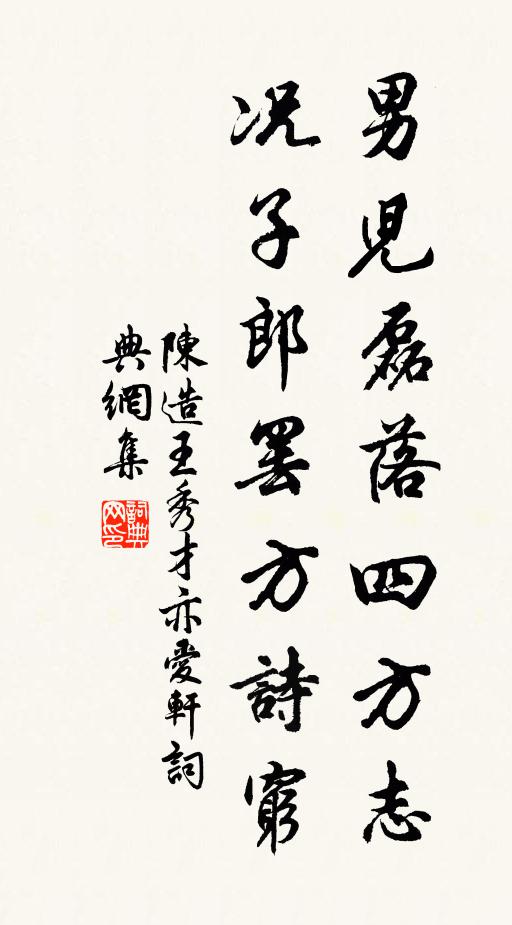 男兒磊落四方志
況子郎罷方詩窮
陳造王秀才亦愛軒詞
典網集
詞典網印